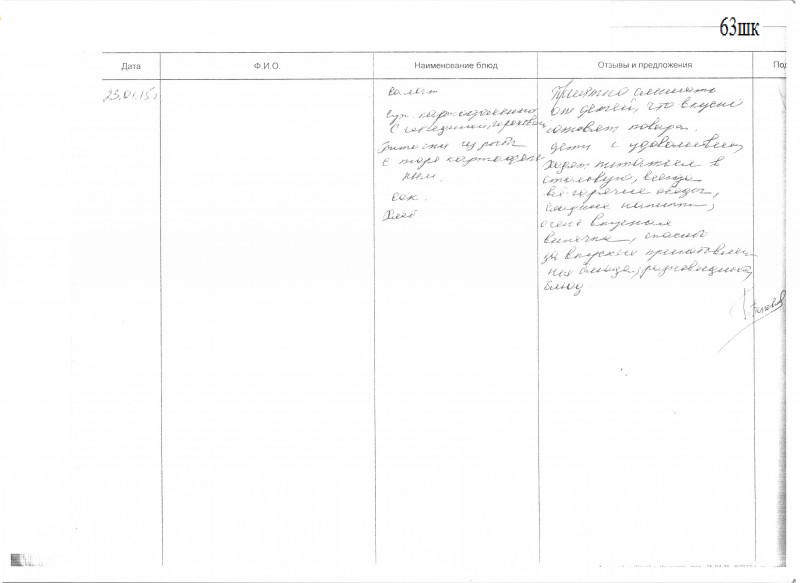 63шк
Дата Ф.И.О. Наименование блюд Отзывы и предложения Под
23.01.15г
салат
Суп картофельный
с говядиной,
из рыбы
с пюре картофель
ным.
сок.
Хлеб
Приятно слышать
от детей, что вкусно
готовят повара.
Дети с удовольствием
ходят питаться в
столовую, всегда
всё горячие обеды,
сладкие напитки,
очень вкусная
выпечка, спасибо
за вкусные приготовлен
ные блюда, разновидность
блюд